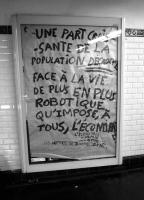 -UNE PART CROIS
-SANTE DE LA
POPULATION DÉCROCHE
FACE À LA VIE
DE PLUS EN PLUS
ROBOTIQUE
QU'IMPOSE, À
TOUS, L'ÉCONOMIE